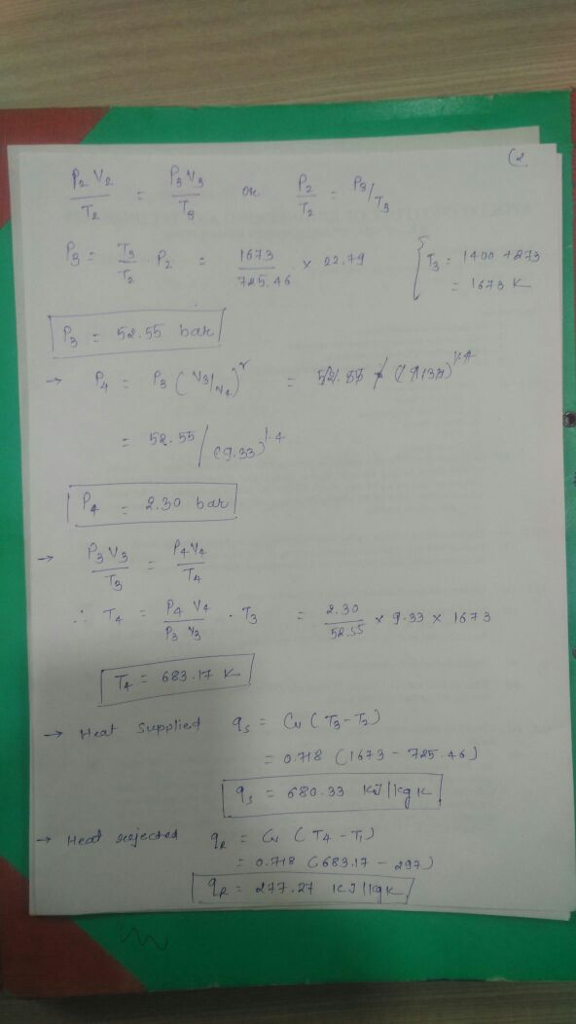 (2
P₂ V₂ / T₂ = P₃ V₃ / T₃ or P₂ / T₂ = P₃ / T₃
P₃ = T₃ / T₂ · P₂ = 1673 / 725.46 × 22.79 { T₃ = 1400 + 273
= 1673 K
P₃ = 52.55 bar
→ P₄ = P₃ (V₃/V₄)^γ =
= 52.55 / (9.33)^1.4
P₄ = 2.30 bar
→ P₃ V₃ / T₃ = P₄ V₄ / T₄
∴ T₄ = P₄ V₄ / P₃ V₃ · T₃ = 2.30 / 52.55 × 9.33 × 1673
T₄ = 683.17 K
→ Heat Supplied qs = Cv (T₃ - T₂)
= 0.718 (1673 - 725.46)
qs = 680.33 KJ/kg K
→ Heat rejected qR = Cv (T₄ - T₁)
= 0.718 (683.17 - 297)
qR = 277.27 KJ/kg K